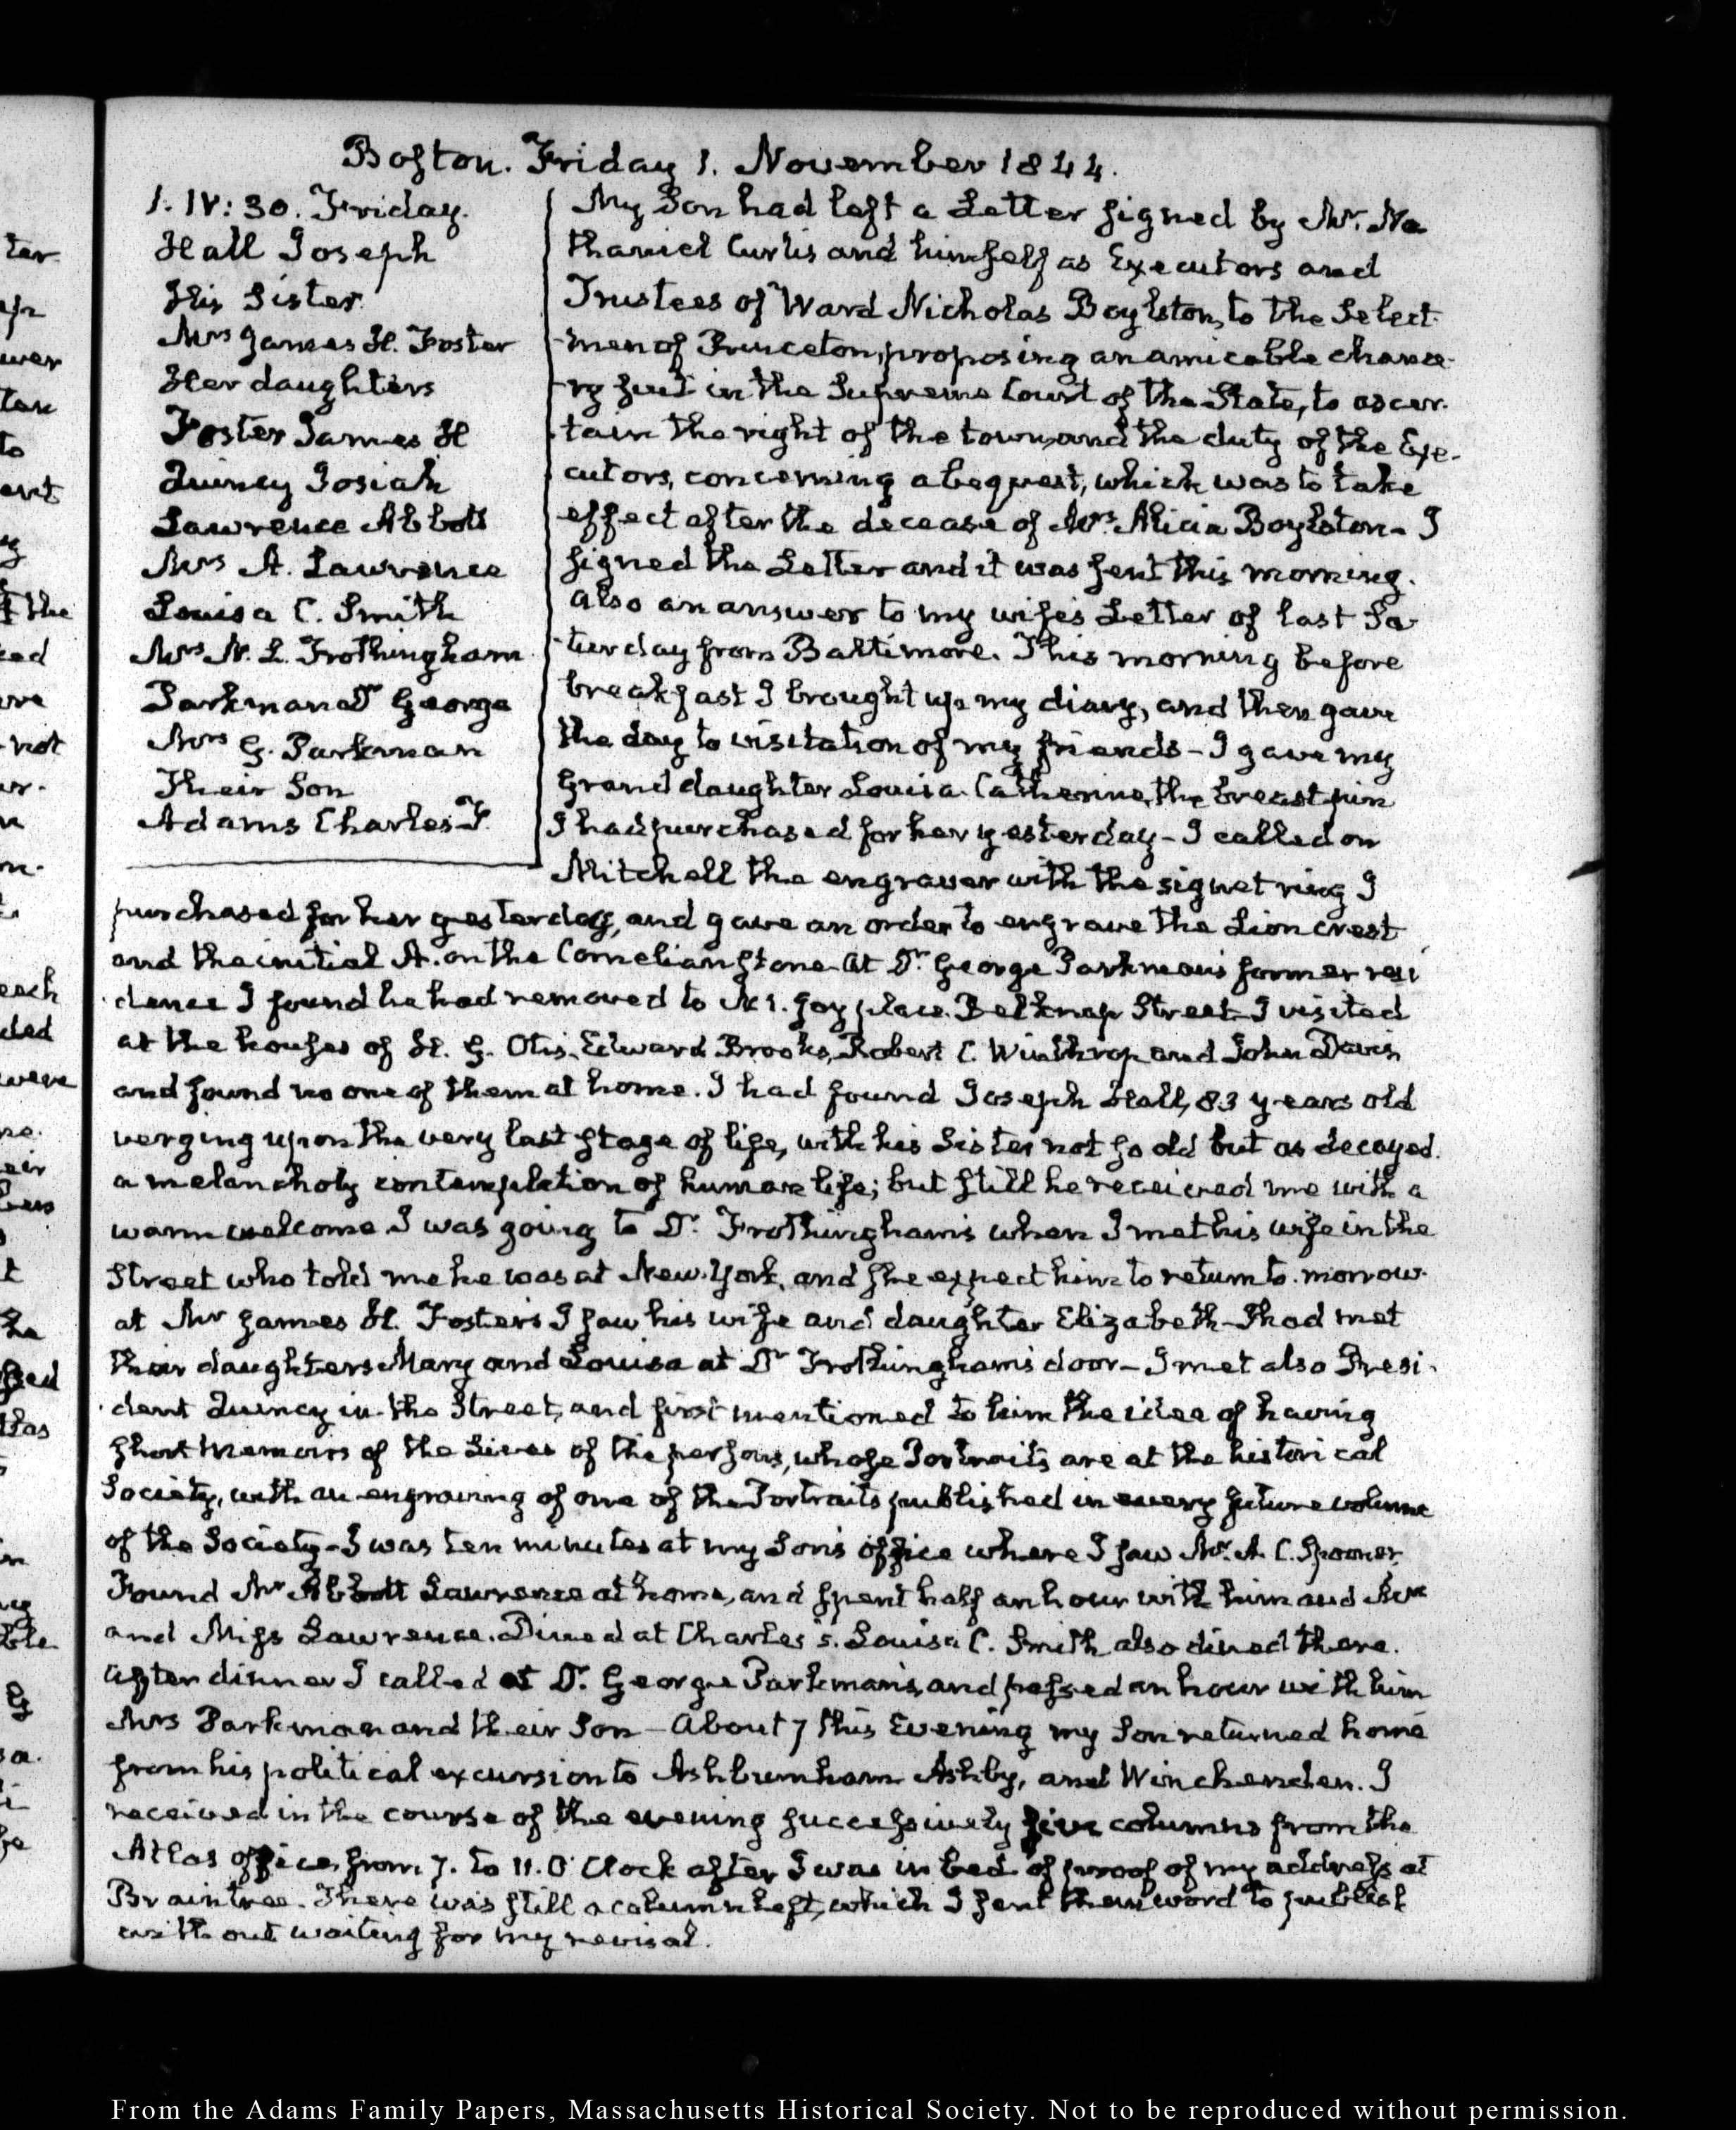 Boston. Friday 1. November 1844.
1. IV: 30. Friday.
Hall Joseph
His Sister.
Mrs James H. Foster
Her daughters
Foster James H
Quincy Josiah
Lawrence Abbott
Mrs A. Lawrence
Louisa C. Smith
Mrs N. L. Frothingham
Parkman Dr George
Mrs G. Parkman
Their Son
Adams Charles F.
My Son had left a Letter signed by Mr. Na
thaniel Curtis and himself as Executors and
Trustees of Ward Nicholas Boylston, to the Select-
-men of Princeton, proposing an amicable chance-
-ry suit in the Supreme Court of the State, to ascer-
-tain the right of the town, and the duty of the Exe-
-cutors, concerning a bequest, which was to take
effect after the decease of Mrs. Alicia Boylston - I
signed the Letter and it was sent this morning.
also an answer to my wife's Letter of last Sa
-turday from Baltimore. This morning before
breakfast I brought up my diary, and then gave
the day to visitation of my friends - I gave my
Grand daughter Louisa Catherine, the breast pin
I had purchased for her yesterday - I called on
Mitchell the engraver with the signet ring I
purchased for her yesterday, and gave an order to engrave the Lion crest
and the initial A. on the Cornelian stone. At Dr. George Parkman's former resi
-dence I found he had removed to N 1. Joy place. Belknap Street - I visited
at the houses of H. G. Otis, Edward Brooks, Robert C. Winthrop and John Davis
and found no one of them at home. I had found Joseph Hall, 83 years old
verging upon the very last stage of life, with his Sister not so old but as decayed.
a melancholy contemplation of human life; but still he received me with a
warm welcome. I was going to Dr. Frothingham's when I met his wife in the
Street who told me he was at New-York, and she expect him to return to-morrow.
at Mr James H. Foster's I saw his wife and daughter Elizabeth - I had met
their daughters Mary and Louisa at Dr Frothingham's door - I met also Presi-
-dent Quincy in the Street, and first mentioned to him the idea of having
short Memoirs of the Lives of the persons, whose Portraits are at the historical
Society, with an engraving of one of the Portraits published in every future volume
of the Society - I was ten minutes at my Son's office where I saw Mr. A. C. Spooner
Found Mr Abbott Lawrence at home, and spent half an hour with him and Mrs
and Miss Lawrence. Dined at Charles's. Louisa C. Smith also dined there.
after dinner I called at Dr. George Parkman's, and passed an hour with him
Mrs Parkman and their Son - About 7 this Evening my Son returned home
from his political excursion to Ashburnham Ashby, and Winchenden. I
received in the course of the evening successively five columns from the
Atlas office, from 7. to 11. O'Clock after I was in bed. of proof of my address at
Braintree. There was still a column left, which I sent them word to publish
without waiting for my revisal.
From the Adams Family Papers, Massachusetts Historical Society. Not to be reproduced without permission.